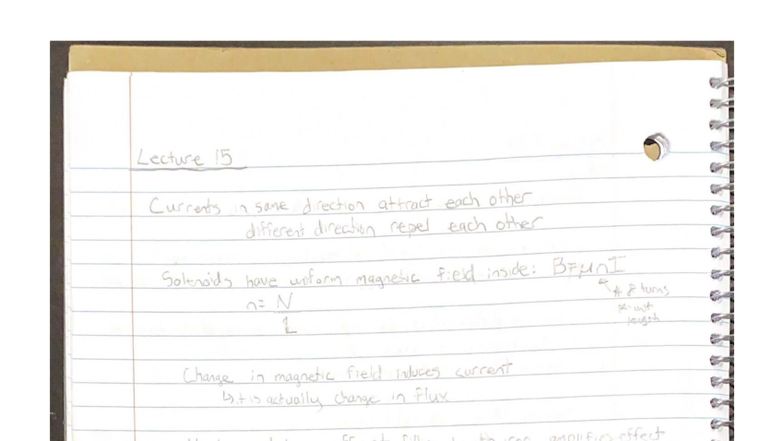 Lecture 15
Currents in same direction attract each other
different direction repel each other
Solenoids have uniform magnetic field inside: B=μnI
n= N
L
# turns
length
Change in magnetic field induces current
↳ it is actually change in flux
amplifies effect